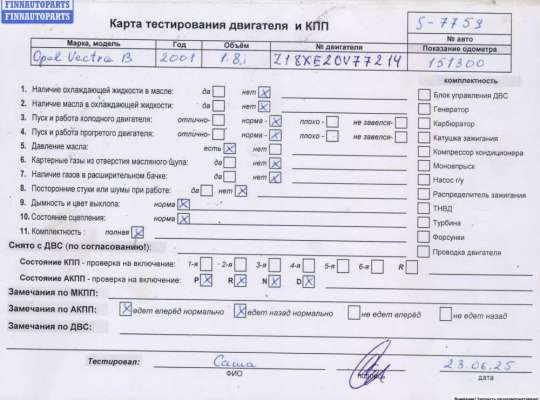 FINNAUTOPARTS
FINNAUTOPARTS
Карта тестирования двигателя и КПП
S-7759
№ авто
Марка, модель Год Объём № двигателя Показание одометра
Opel Vectra B 2001 1.8,i Z18XE20V77214 151300
комплектность
1. Наличие охлаждающей жидкости в масле: да нет X
2. Наличие масла в охлаждающей жидкости: да нет X
3. Пуск и работа холодного двигателя: отлично- норма - X плохо - не завелся-
4. Пуск и работа прогретого двигателя: отлично- норма - X плохо - не завелся-
5. Давление масла: есть X нет
6. Картерные газы из отверстия масляного щупа: да нет X
7. Наличие газов в расширительном бачке: да нет X
8. Посторонние стуки или шумы при работе: да нет X
9. Дымность и цвет выхлопа: норма X
10. Состояние сцепления: норма X
11. Комплектность : полная X
Блок управления ДВС
Генератор
Карбюратор
Катушка зажигания
Компрессор кондиционера
Моновпрыск
Насос г/у
Распределитель зажигания
ТНВД
Турбина
Форсунки
Проводка двигателя
Снято с ДВС (по согласованию!):
Состояние КПП - проверка на включение: 1-я 2-я 3-я 4-я 5-я 6-я R
Состояние АКПП - проверка на включение: P X R X N X D X
Замечания по МКПП:
Замечания по АКПП: X едет вперёд нормально X едет назад нормально не едет вперёд не едет назад
Замечания по ДВС:
Тестировал: Саша 23.06.25
ФИО подпись дата